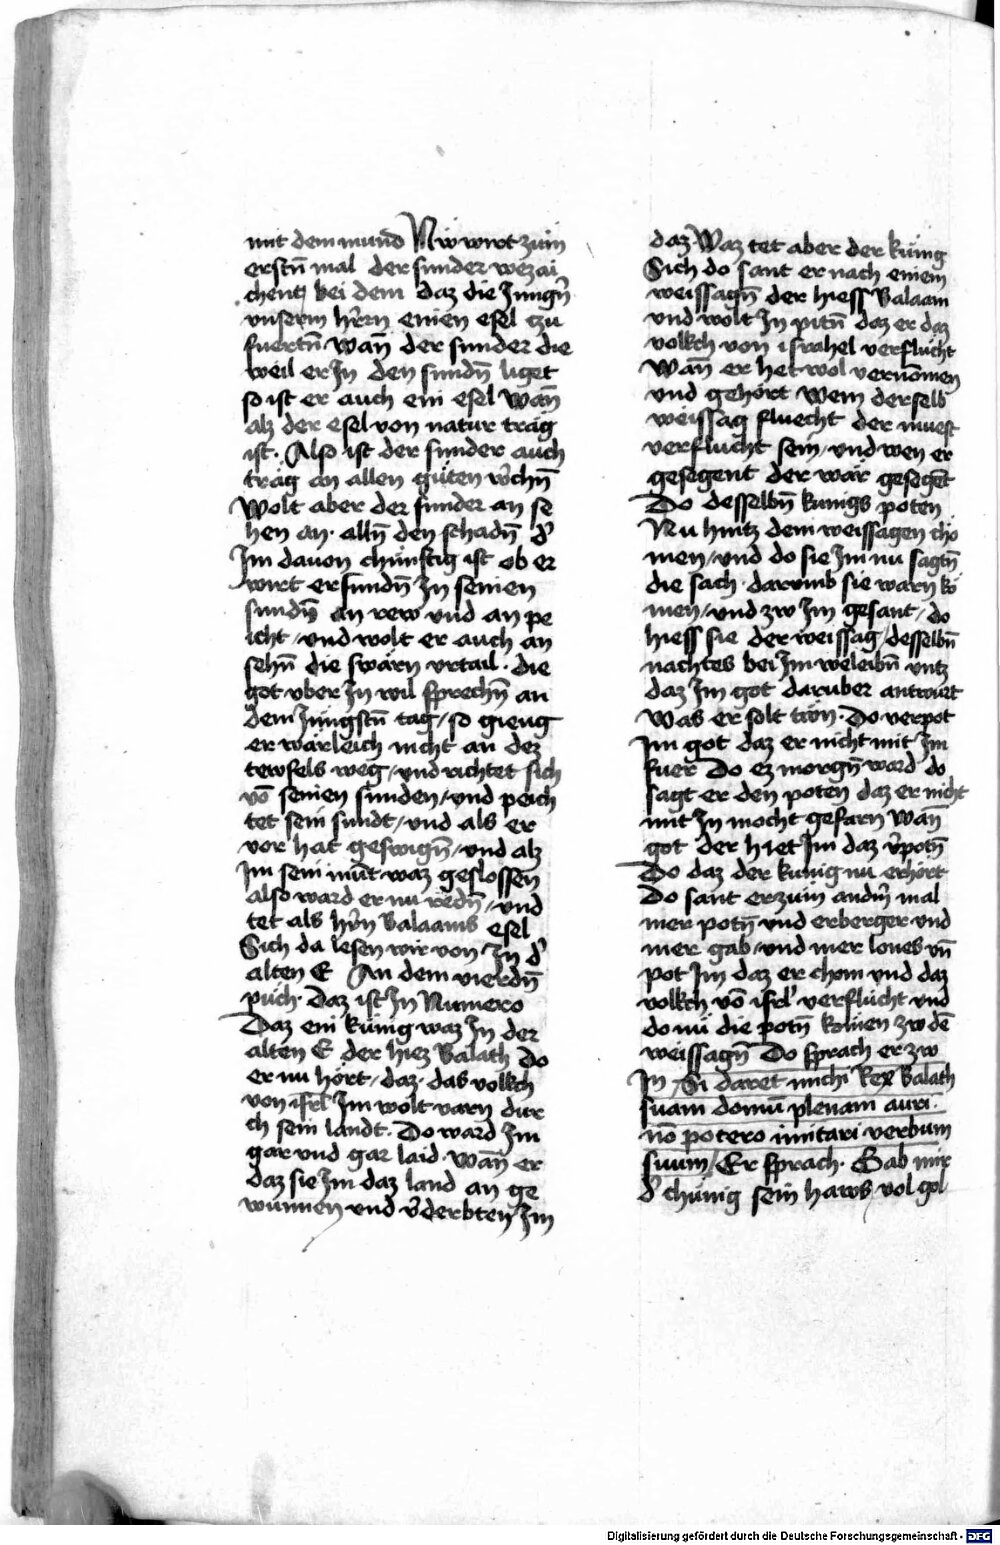 mit dem mund Nw wirt zum
erstn̄ mal der sunder wezai
chent bei dem daz die Jungn̄
vnserm hr̄rn einen esel zu
fuertn̄ Wan̄ der sunder die
weil er In den sundn̄ liget
so ist er auch ein esel Wan̄
alz der esel von natur träg
ist. Also ist der sunder auch
träg an allen güten
Wolt aber der sunder an se
hen an. alln̄ den schadn̄ d'
Im dauon chünftig ist ob er
wirt erfundn̄ In seinen
sundn̄ an rew vnd an pe
icht / vnd wolt er auch an
sehn̄ die swärn vrtail. die
got vber In wil sprechn̄ an
dem Jüngstn̄ tag / so gieng
er wärleich nicht an dez
tewfels weg / vnd richtet sich
vō seinen sunden / vnd peich
tet sein sundt / vnd als er
vor hat geswign̄ / vnd alz
Im sein münt waz geslossen
also ward er nu redn̄ / vnd
tet als hr̄n Balaams esel
Sich da lesen wir von In d'
alten E An dem vierdn̄
püch. Daz ist In Numero
Daz ein künig waz In der
alten E der hiez Balath do
er nu hört / daz. das volkch
von isrl' Im wolt varn dur
ch sein landt. Do ward Im
gar vnd gar laid. Wan̄ er
daz sie Im daz land an ge
wunnen vnd v'derbten Im
daz. Waz tet aber der künig
Sich do sant er nach einem
weissagn̄ der hiess Balaam
vnd wolt In pitn̄ daz er daz
volkch von israhel verflücht
Wan̄ er het wol vernōmen
vnd gehört Wem derselb
weissag fluecht der muest
verflücht sein / vnd wen er
gesegent der wär gesegēt
Do desselbn̄ kunigs poten
Nu hintz dem weissagen chö
men / vnd do sie Im nu sagtn̄
die sach. darumb sie warn kö
men / vnd zw Im gesant / do
hiess sie der weissag / desselbn̄
nachtes bei Im weleibn̄ vntz
daz Im got daruber antwurt
Was er solt tün. Do verpot
Im got daz er nicht mit Im
fuer Do ez morgn̄ ward do
sagt er den poten daz er nicht
mit In mocht gefarn Wan̄
got der hiet Im daz v'potn̄
Do daz der kunig nu erhört
Do sant er zum andn̄ mal
mer potn̄ vnd erberger vnd
mer gab / vnd mer lones vn̄
pot Im daz er chom vnd daz
volkch vō isrl' verflücht vnd
do nü die potn̄ kömen zw dē
weissagn̄ Do sprach er zw
In / Si daret michi Rex Balath
suam domū plenam auri.
nō potero imitari verbum
suum / Er sprach. Gab mir
d' chünig sein haws vol gol
Digitalisierung gefördert durch die Deutsche Forschungsgemeinschaft - DFG